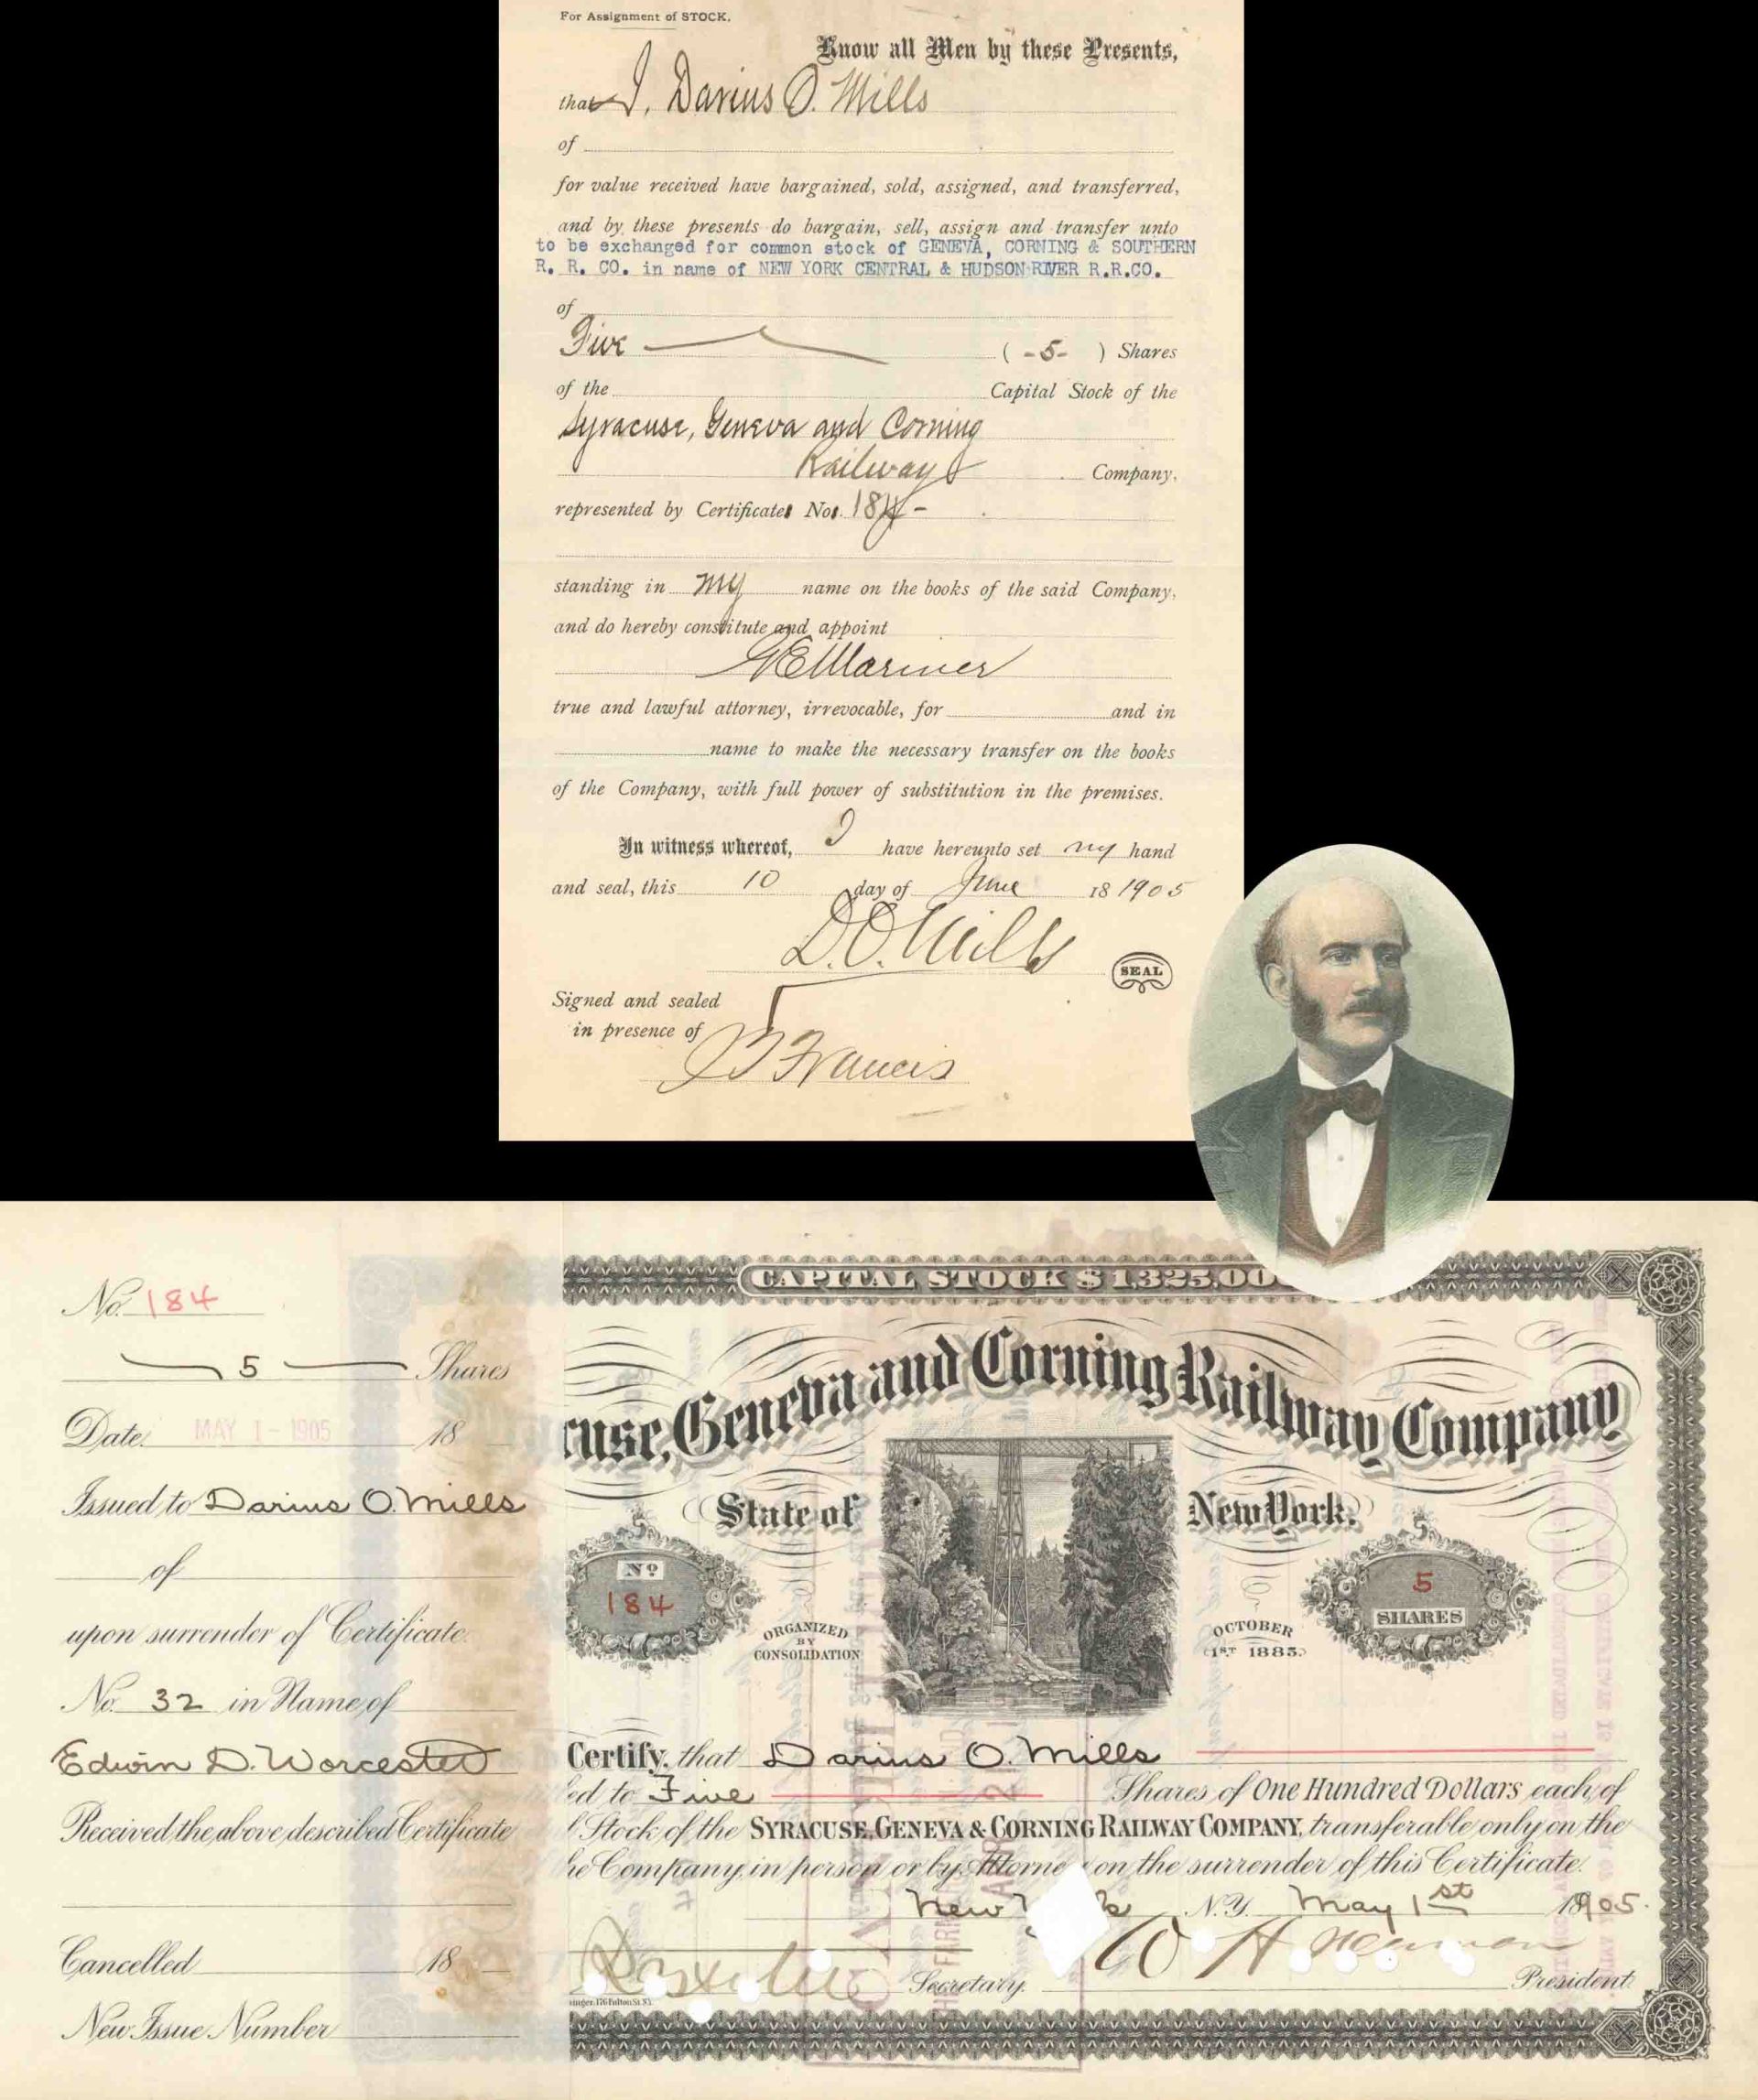 For Assignment of STOCK.
Know all Men by these Presents,
that I, Darius O. Mills
of
for value received have bargained, sold, assigned, and transferred,
and by these presents do bargain, sell, assign and transfer unto
to be exchanged for common stock of GENEVA, CORNING & SOUTHERN
R. R. CO. in name of NEW YORK CENTRAL & HUDSON RIVER R.R.CO.
of
Five ( -5- ) Shares
of the Capital Stock of the
Syracuse, Geneva and Corning
Railway Company,
represented by Certificates Nos. 184 -
standing in my name on the books of the said Company,
and do hereby constitute and appoint
G E Mariner
true and lawful attorney, irrevocable, for and in
name to make the necessary transfer on the books
of the Company, with full power of substitution in the premises.
In witness whereof, I have hereunto set my hand
and seal, this 10 day of June 18 1905
D.O. Mills
SEAL
Signed and sealed
in presence of
Francis
No. 184
5 Shares
Date. MAY 1 - 1905 18
Issued to Darius O. Mills
of
upon surrender of Certificate
No. 32 in Name of
Edwin D. Worcester
Received the above described Certificate
Cancelled 18
New Issue Number
CAPITAL STOCK $1,325,00
cuse, Geneva and Corning Railway Company
State of New York.
No 184
ORGANIZED BY CONSOLIDATION
OCTOBER 1ST 1885.
5 SHARES
Certify, that Darius O. Mills
led to Five Shares of One Hundred Dollars each, of
l Stock of the SYRACUSE, GENEVA & CORNING RAILWAY COMPANY, transferable only on the
he Company, in person or by Attorney on the surrender of this Certificate.
New York N.Y. May 1st 1905.
Secretary. W H Newman President.
inger, 176 Fulton St. N.Y.